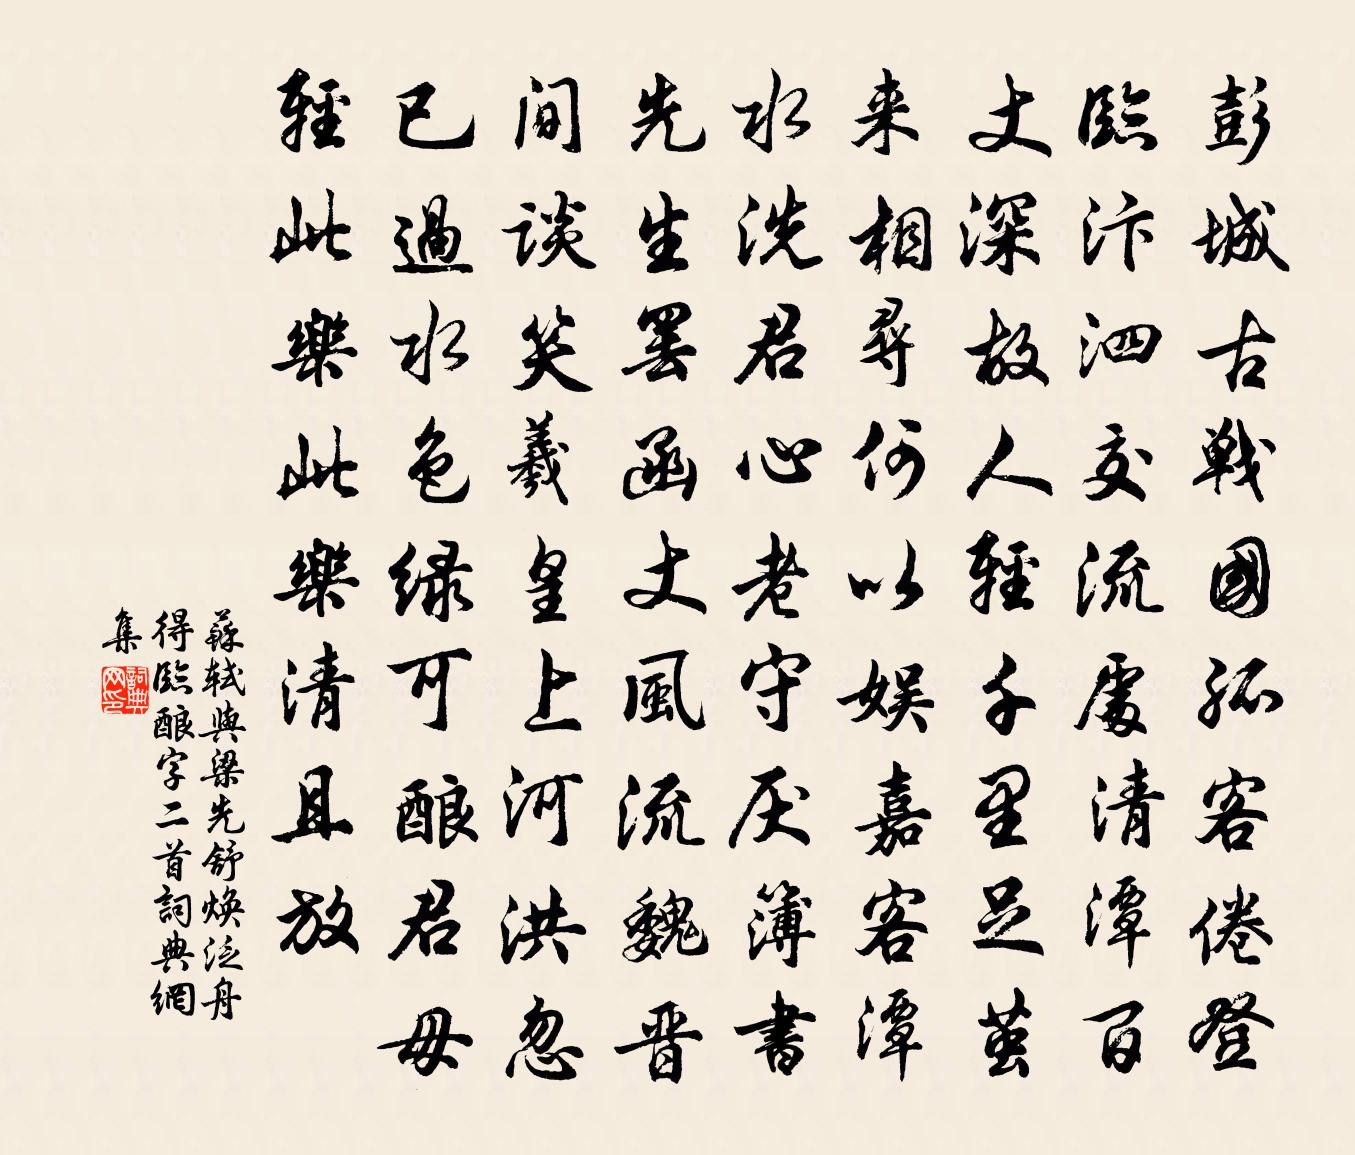 彭城古戰國孤客倦登
臨汴泗交流處清潭百
丈深故人輕千里足茧
来相尋何以娱嘉客潭
水洗君心老守厌簿書
先生罢函丈風流魏晋
間談笑羲皇上河洪忽
已過水色绿可酿君毋
輕此樂此樂清且放
蘇軾與梁先舒焕泛舟
得臨酿字二首詞典網
集
詞典网印